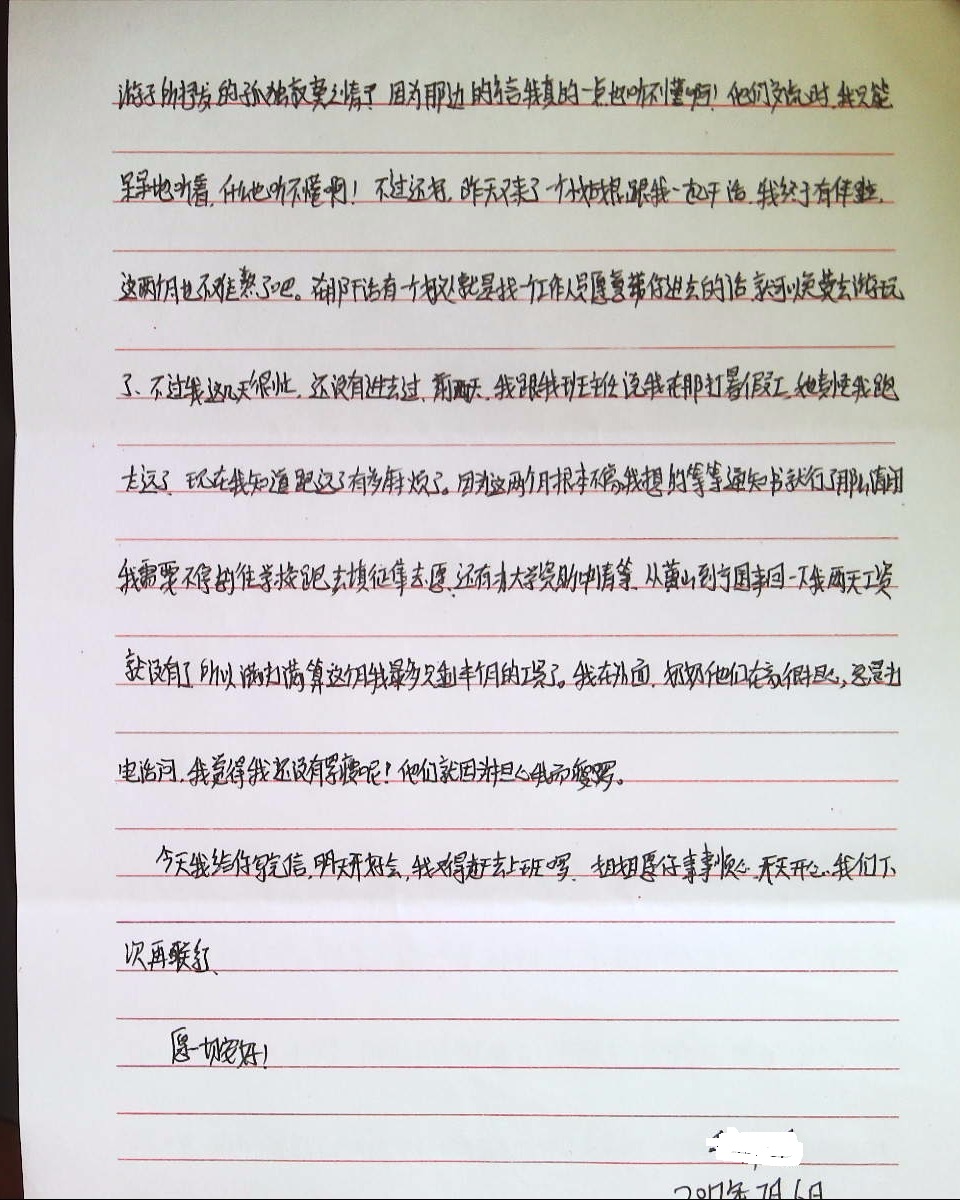 游子所抒发的孤独寂寞之情了。因为那边的方言我真的一点也听不懂啊！他们交流时，我只能
呆呆地听着，什么也听不懂啊！不过还好，昨天又来了一个姑娘跟我一起干活，我终于有伴啦，
这两个月也不难熬了吧。在那干活有一个好处就是找一个工作人员愿意带你进去的话，就可以免费去游玩
了、不过我这几天很忙，还没有进去过、前两天，我跟我班主任说我在那打暑假工，她责怪我跑
太远了、现在我知道跑远了有多麻烦了。因为这两个月根本不像我想的等等通知书就行了那么清闲
我需要不停的往学校跑去填征集志愿、还有办大学资助申请等、从黄山到宁国来回一下我两天工资
就没有了所以满打满算这个月我最多只剩半个月的工资了。我在外面，奶奶他们在家很担心，总是打
电话问，我觉得我还没有累瘦呢！他们就因为担心我而瘦啰。
今天我给你写完信，明天开好会，我又得赶去上班啰、姐姐愿你事事顺心、天天开心、我们下
次再聊了、
愿一切安好！
2017年7月6日